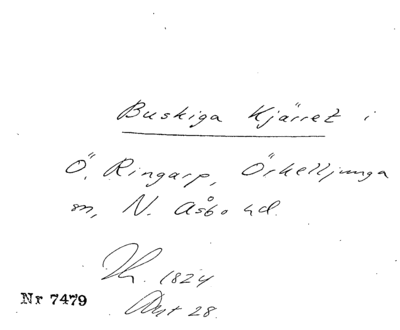 Buskiga Kjärret i
Ö. Ringarp, Örkelljunga
sn, N. Åsbo hd.
1824
Nr 7479
Akt 28.